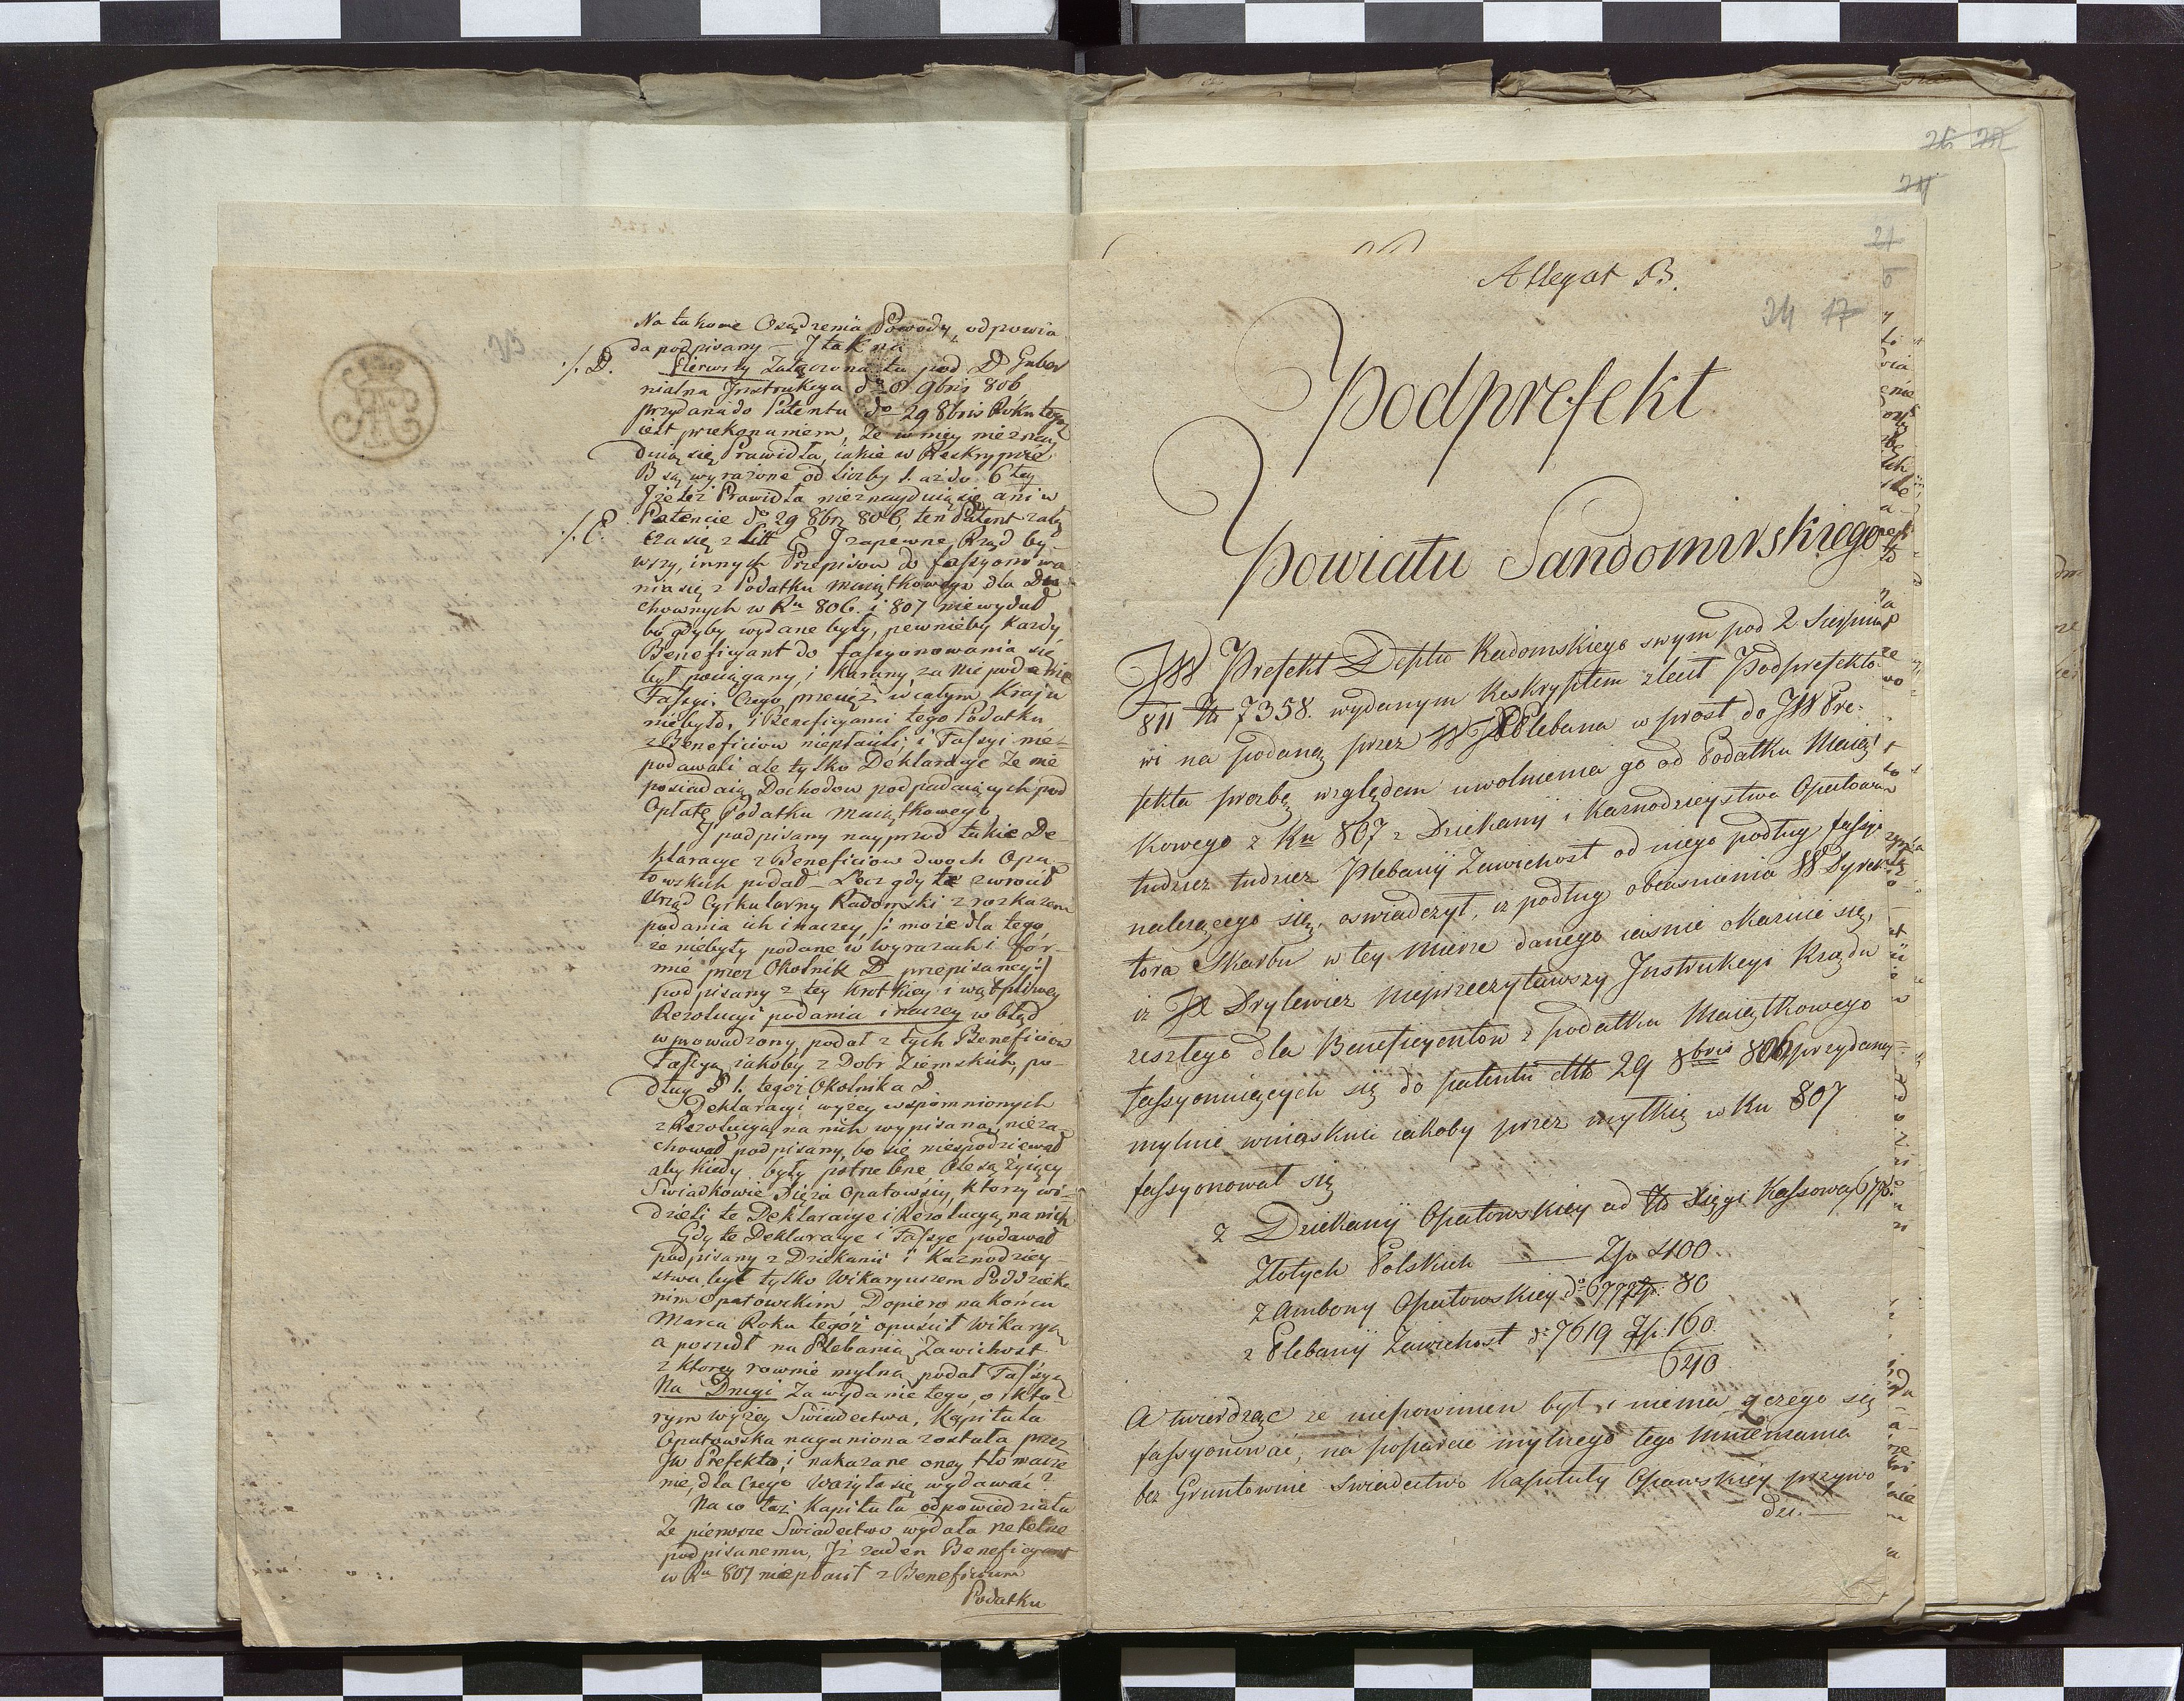 Na takowe Osądzenia Powody, odpowia
da podpisany — J tak na
./. D. Pierwszy Załączona tu pod D Guber
nialna Jnstrukcya do 6 9bris 806
przydana do Patentu do 29 8bris Roku tegoż
iest przekonaniem, że w niey nieznay
duią się Prawidła, iakie w Reskrypcie
B są wyrażone od Liczby 1. aż do 6tey
Jż też Prawidła nieznayduią się ani w
./. E. Patencie do 29 8br 806, ten Patent załą
cza się z Litt E J zapewne Rząd by-
wszy, innych Przepisow do fassyonowa
nia się z Podatku Maiątkowego dla Du
chownych w Ru 806. i 807 niewydał
bo gdyby wydane były, pewnieby każdy
Beneficyant do fassyonowania się
był pociągany, i karany za niepodanie
Fassyi. Czego przecięż w całym Kraju
niebyło, i Beneficyanci tego Podatku
z Beneficiow niepłacili, i Fassyi nie-
podawali ale tylko Deklaracye że nie
posiadaią Dochodow podpadaiących pod
Opłatę Podatku Maiątkowego
J podpisany nayprzod takie De
klaracye z Beneficiow dwoch Opa-
towskich podał — Lecz gdy te zwrocił
Urząd Cyrkularny Radomski z rozkazem
podania ich inaczey, /: może dla tego,
że niebyły podane w Wyrazach i for-
mie przez Okolnik D przepisaney :/
podpisany z tey krotkiey i wątpliwey
Rezolucyi podania inaczey w błąd
wprowadzony, podał z tych Beneficiow
Fassyą iakoby z Dobr Ziemskich, po-
dług § 1. tegoż Okolnika D
Deklaracyi wyżey wspomnionych
z Rezolucyą na nich wypisaną, nieza
chował podpisany, bo się niespodziewał
aby kiedy były potrzebne, Ale są żyiący
Swiadkowie Xięża Opatowscy, ktorzy wi-
dzieli te Deklaracye i Rezolucyą na nich
Gdy te Deklaracye i Fassye podawał
podpisany z Dziekanii i Kaznodziey-
stwa był tylko Wikaryuszem Poddzieka
nim Opatowskim Dopiero na końcu
Marca Roku tegoż opuścił Wikaryą
a poszedł na Plebanią Zawichost
z ktorey rownie mylną podał Fassyą
Na Drugi Za wydanie tego, o kto-
rym wyżey Swiadectwa, Kapituła
Opatowska naganiona została przez
JW Prefekta, i nakazane oney tłomacze
nie, dla czego ważyła się wydawać?
Na co taż Kapituła odpowiedziała
Że pierwsze Swiadectwo wydała rzetelne
podpisanemu, Jż żaden Beneficyant
w Ru 807 niepłacił z Beneficium
Podatku
26 22
21
21
Allegat B.
24 17
Podprefekt
Powiatu Sandomirskiego
JW Prefekt Deptu Radomskiego swym pod 2 Sierpnia
811 No 7358. wydanym Reskryptem zlecił Podprefekto
wi na podaną przez W JX Plebana w prost do JW Pre-
fekta prozbę względem uwolnienia go od Podatku Maiąt
kowego z Ru 807 z Dziekanij i Kaznodzieystwa Opatowa
tudzież tudzież Plebanij Zawichost od niego podług fassyi
należącego się, oswiadczył, iż podług obiasnienia W Dyrek
tora Skarbu w tey Mierze danego iasnie okazuie się,
iż JX Drylewicz nieprzeczytawszy Jnstrukcyi Rządu
zeszłego dla Beneficyentow z podatku Maiątkowego
fassyonuiących się do patentu dtto 29 8bris 806 przydaney
mylnie wnioskuie iakoby przez mytkię w Ru 807
fassyonował się
z Dziekanij Opatowskiey ad No Xięgi Kassowey 676.
Złotych Polskich — Zp 400.
z Ambony Opatowskiey do 677 Zp. 80
z Plebanij Zawichost do 7619 Zp. 160.
640.
A twierdząc że niepowinien był i niema z czego się
fassyonować, na poparcie mylnego tego Mniemania
bez Gruntownie Swiadectwo Kapituły Opatowskiey przywo
dzi. —